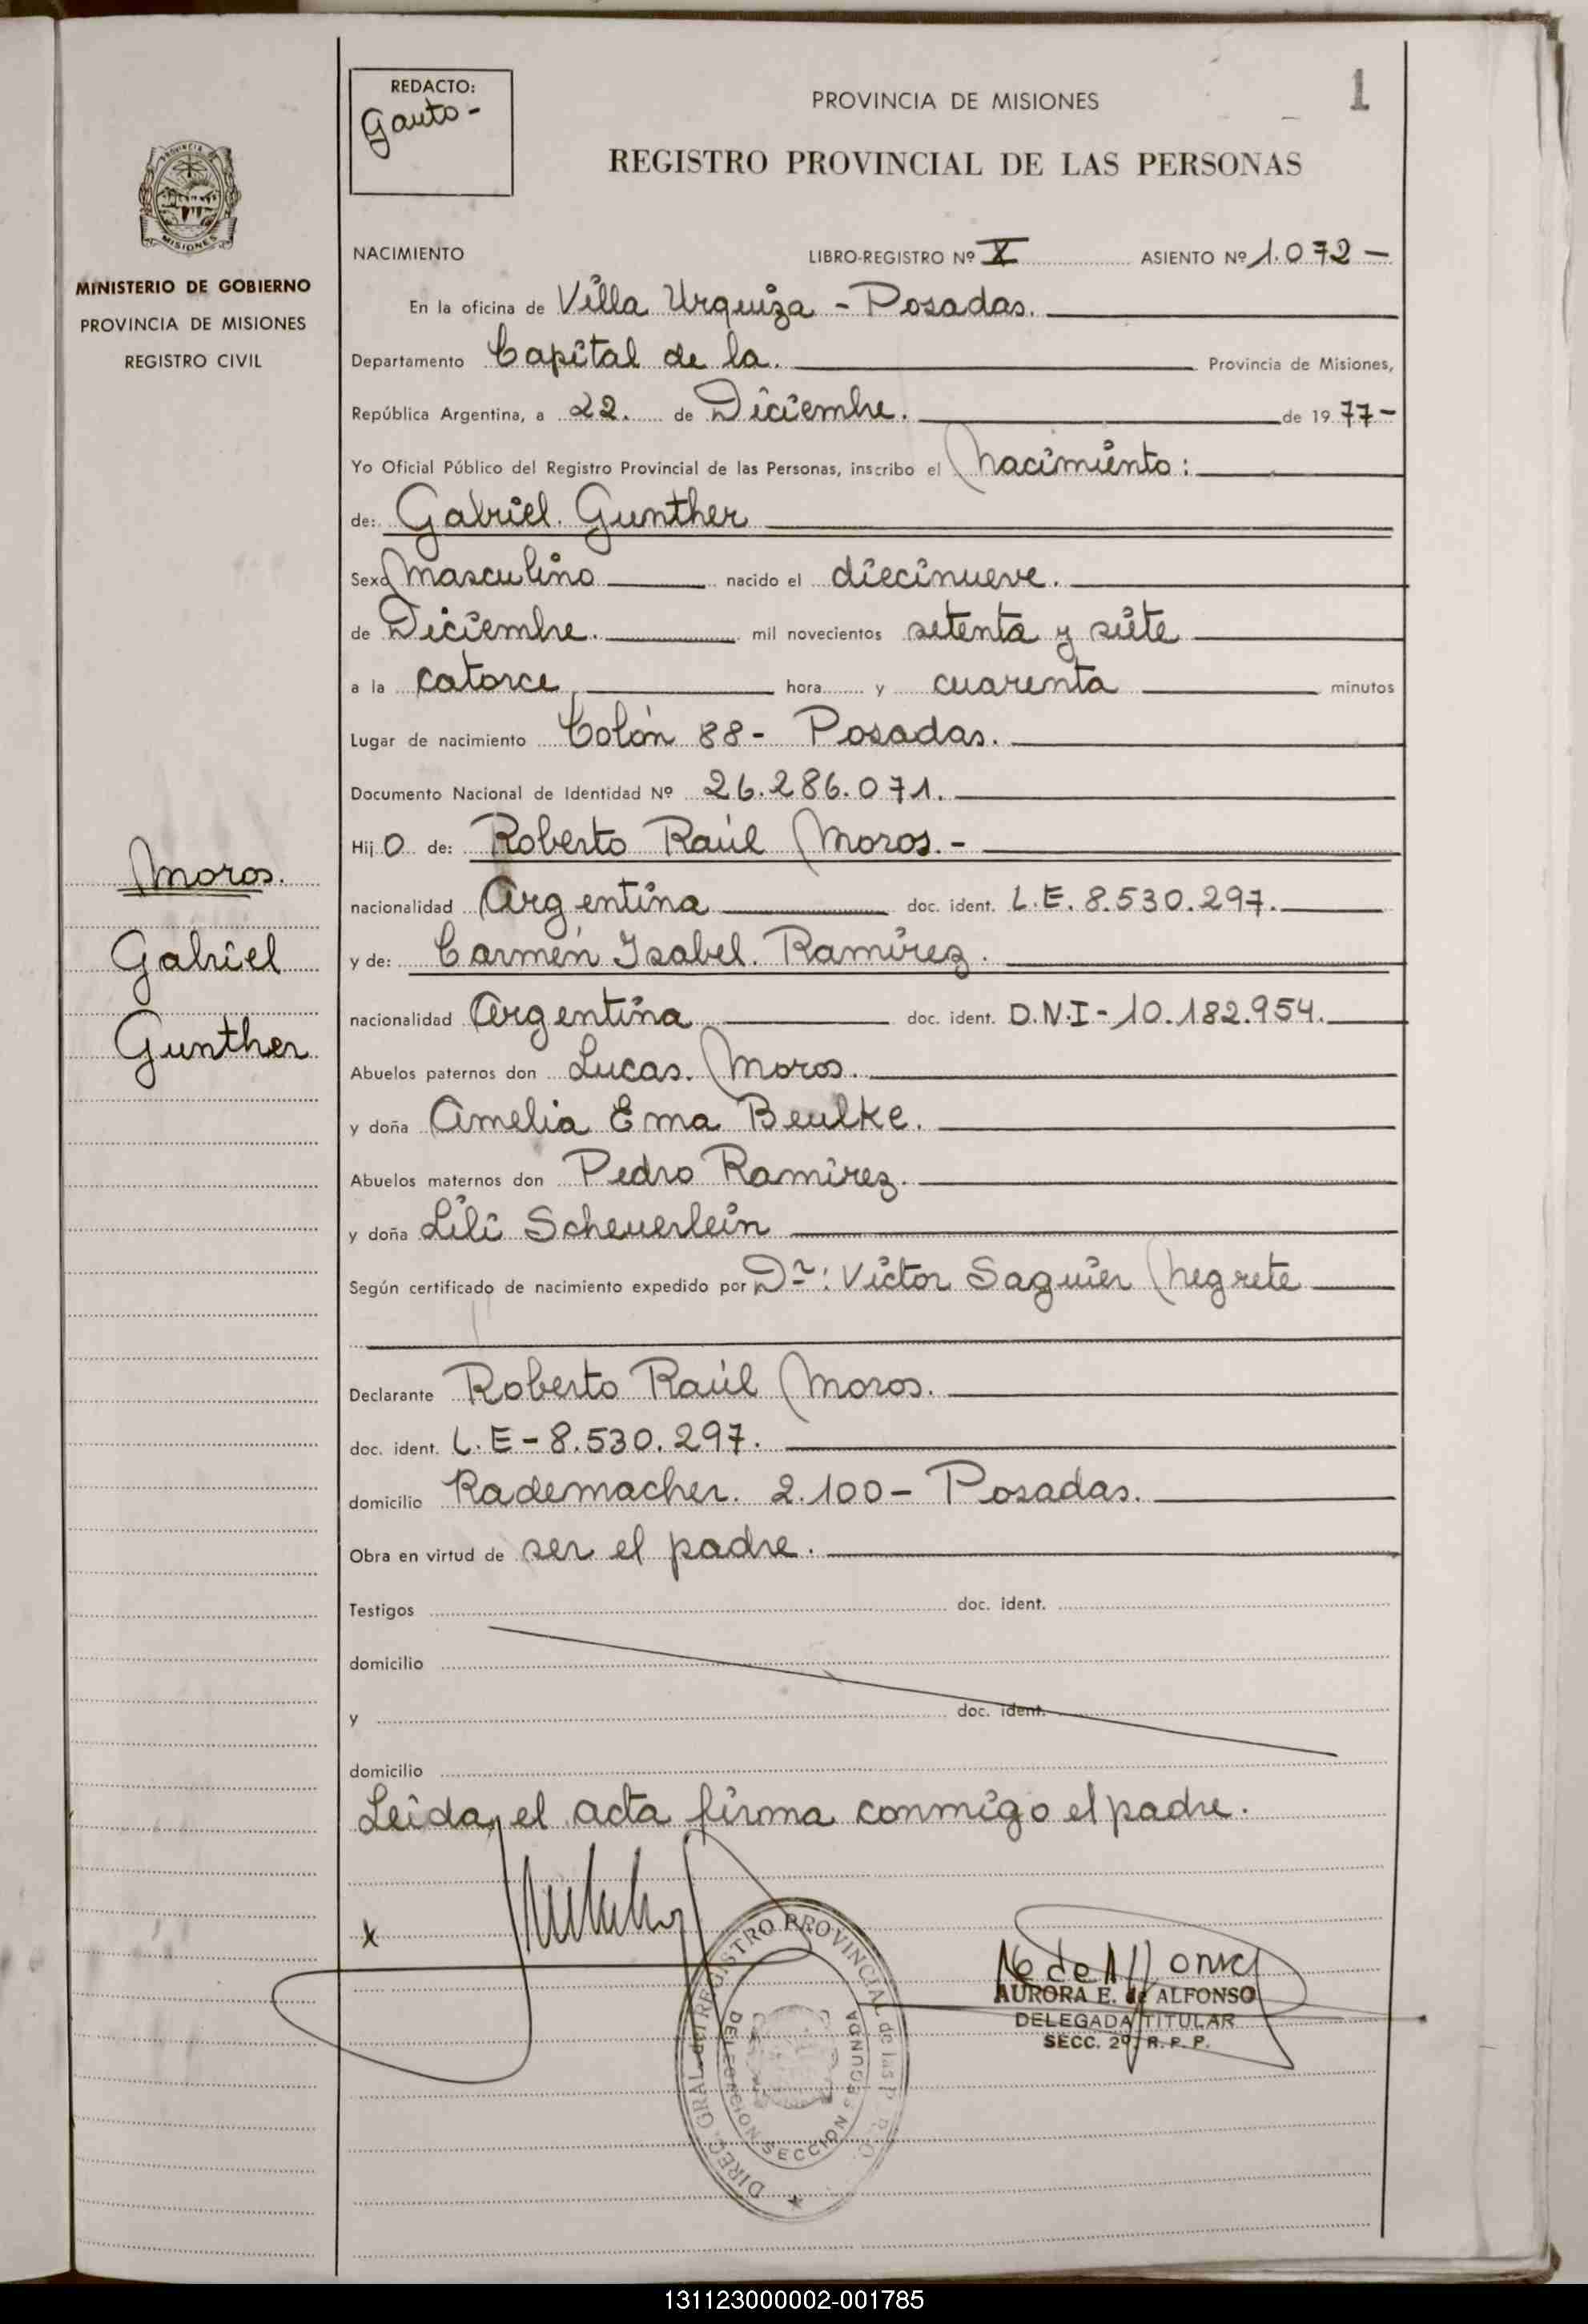 REDACTO:
Gauto -
PROVINCIA DE MISIONES
1
REGISTRO PROVINCIAL DE LAS PERSONAS
MINISTERIO DE GOBIERNO
PROVINCIA DE MISIONES
REGISTRO CIVIL
NACIMIENTO LIBRO-REGISTRO Nº X ASIENTO Nº 1.072 -
En la oficina de Villa Urquiza - Posadas.
Departamento Capital de la. Provincia de Misiones,
República Argentina, a 22. de Diciembre. de 19 77 -
Yo Oficial Público del Registro Provincial de las Personas, inscribo el Nacimiento:
de: Gabriel. Gunther
Sexo Masculino nacido el diecinueve.
de Diciembre. mil novecientos setenta y siete
a la catorce, hora y cuarenta minutos
Lugar de nacimiento Colón 88 - Posadas.
Documento Nacional de Identidad Nº 26.286.071.
Hijo de: Roberto Raúl Moros. -
nacionalidad Argentina doc. ident. L.E. 8.530.297.
y de: Carmen Isabel. Ramírez.
nacionalidad Argentina doc. ident. D.N.I - 10.182.954.
Abuelos paternos don Lucas. Moros.
y doña Amelia Ema Beulke.
Abuelos maternos don Pedro Ramírez.
y doña Lili Scheuerlein
Según certificado de nacimiento expedido por Dr: Victor Saguier Negrete
Declarante Roberto Raúl Moros.
doc. ident. L.E - 8.530.297.
domicilio Rademacher. 2.100 - Posadas.
Obra en virtud de ser el padre.
Testigos doc. ident.
domicilio
y doc. ident.
domicilio
Leida, el acta firma conmigo el padre.
Moros.
Gabriel
Gunther
x
DIREC. GRAL. del REGISTRO PROVINCIAL de las P.
DELEGACION SECCION SEGUNDA
AURORA E. de ALFONSO
DELEGADA TITULAR
SECC. 2º. R. P. P.
131123000002-001785